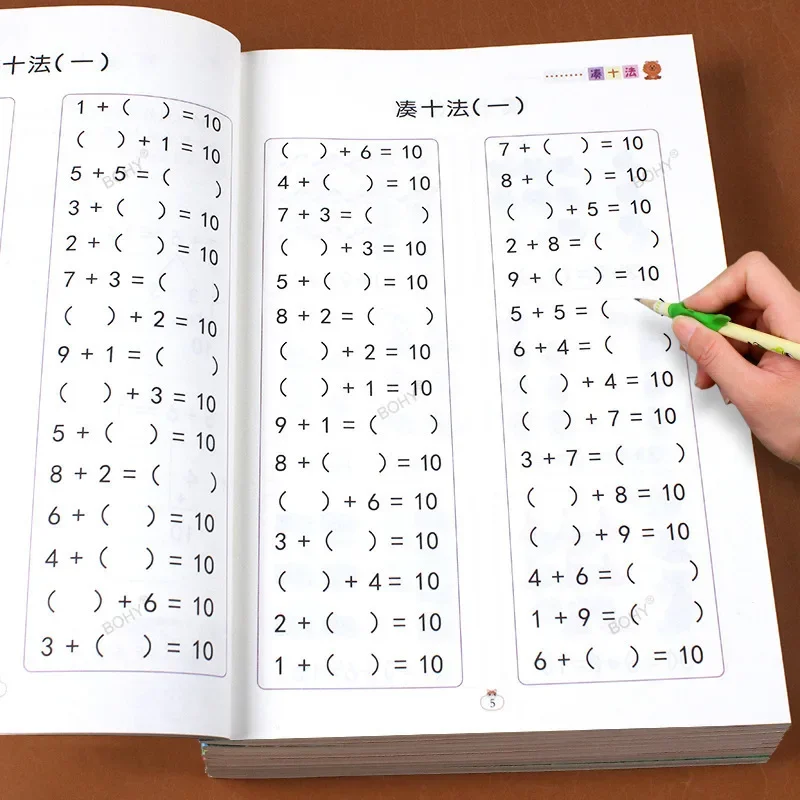 十法(一)
1 + (　) = 10
(　) + 1 = 10
5 + 5 = (　)
3 + (　) = 10
2 + (　) = 10
7 + 3 = (　)
(　) + 2 = 10
9 + 1 = (　)
(　) + 3 = 10
5 + (　) = 10
8 + 2 = (　)
6 + (　) = 10
4 + (　) = 10
(　) + 6 = 10
3 + (　) = 10
凑十法
凑十法(一)
(　) + 6 = 10
4 + (　) = 10
7 + 3 = (　)
(　) + 3 = 10
5 + (　) = 10
8 + 2 = (　)
(　) + 2 = 10
(　) + 1 = 10
9 + 1 = (　)
8 + (　) = 10
(　) + 6 = 10
3 + (　) = 10
(　) + 4 = 10
2 + (　) = 10
1 + (　) = 10
7 + (　) = 10
8 + (　) = 10
(　) + 5 = 10
2 + 8 = (　)
9 + (　) = 10
5 + 5 = (
6 + 4 = (　)
(　) + 4 = 10
(　) + 7 = 10
3 + 7 = (　)
(　) + 8 = 10
(　) + 9 = 10
4 + 6 = (　)
1 + 9 = (　)
6 + (　) = 10
5
BOHY®
BOHY®
BOHY®
BOHY®
BOHY®
BOHY®